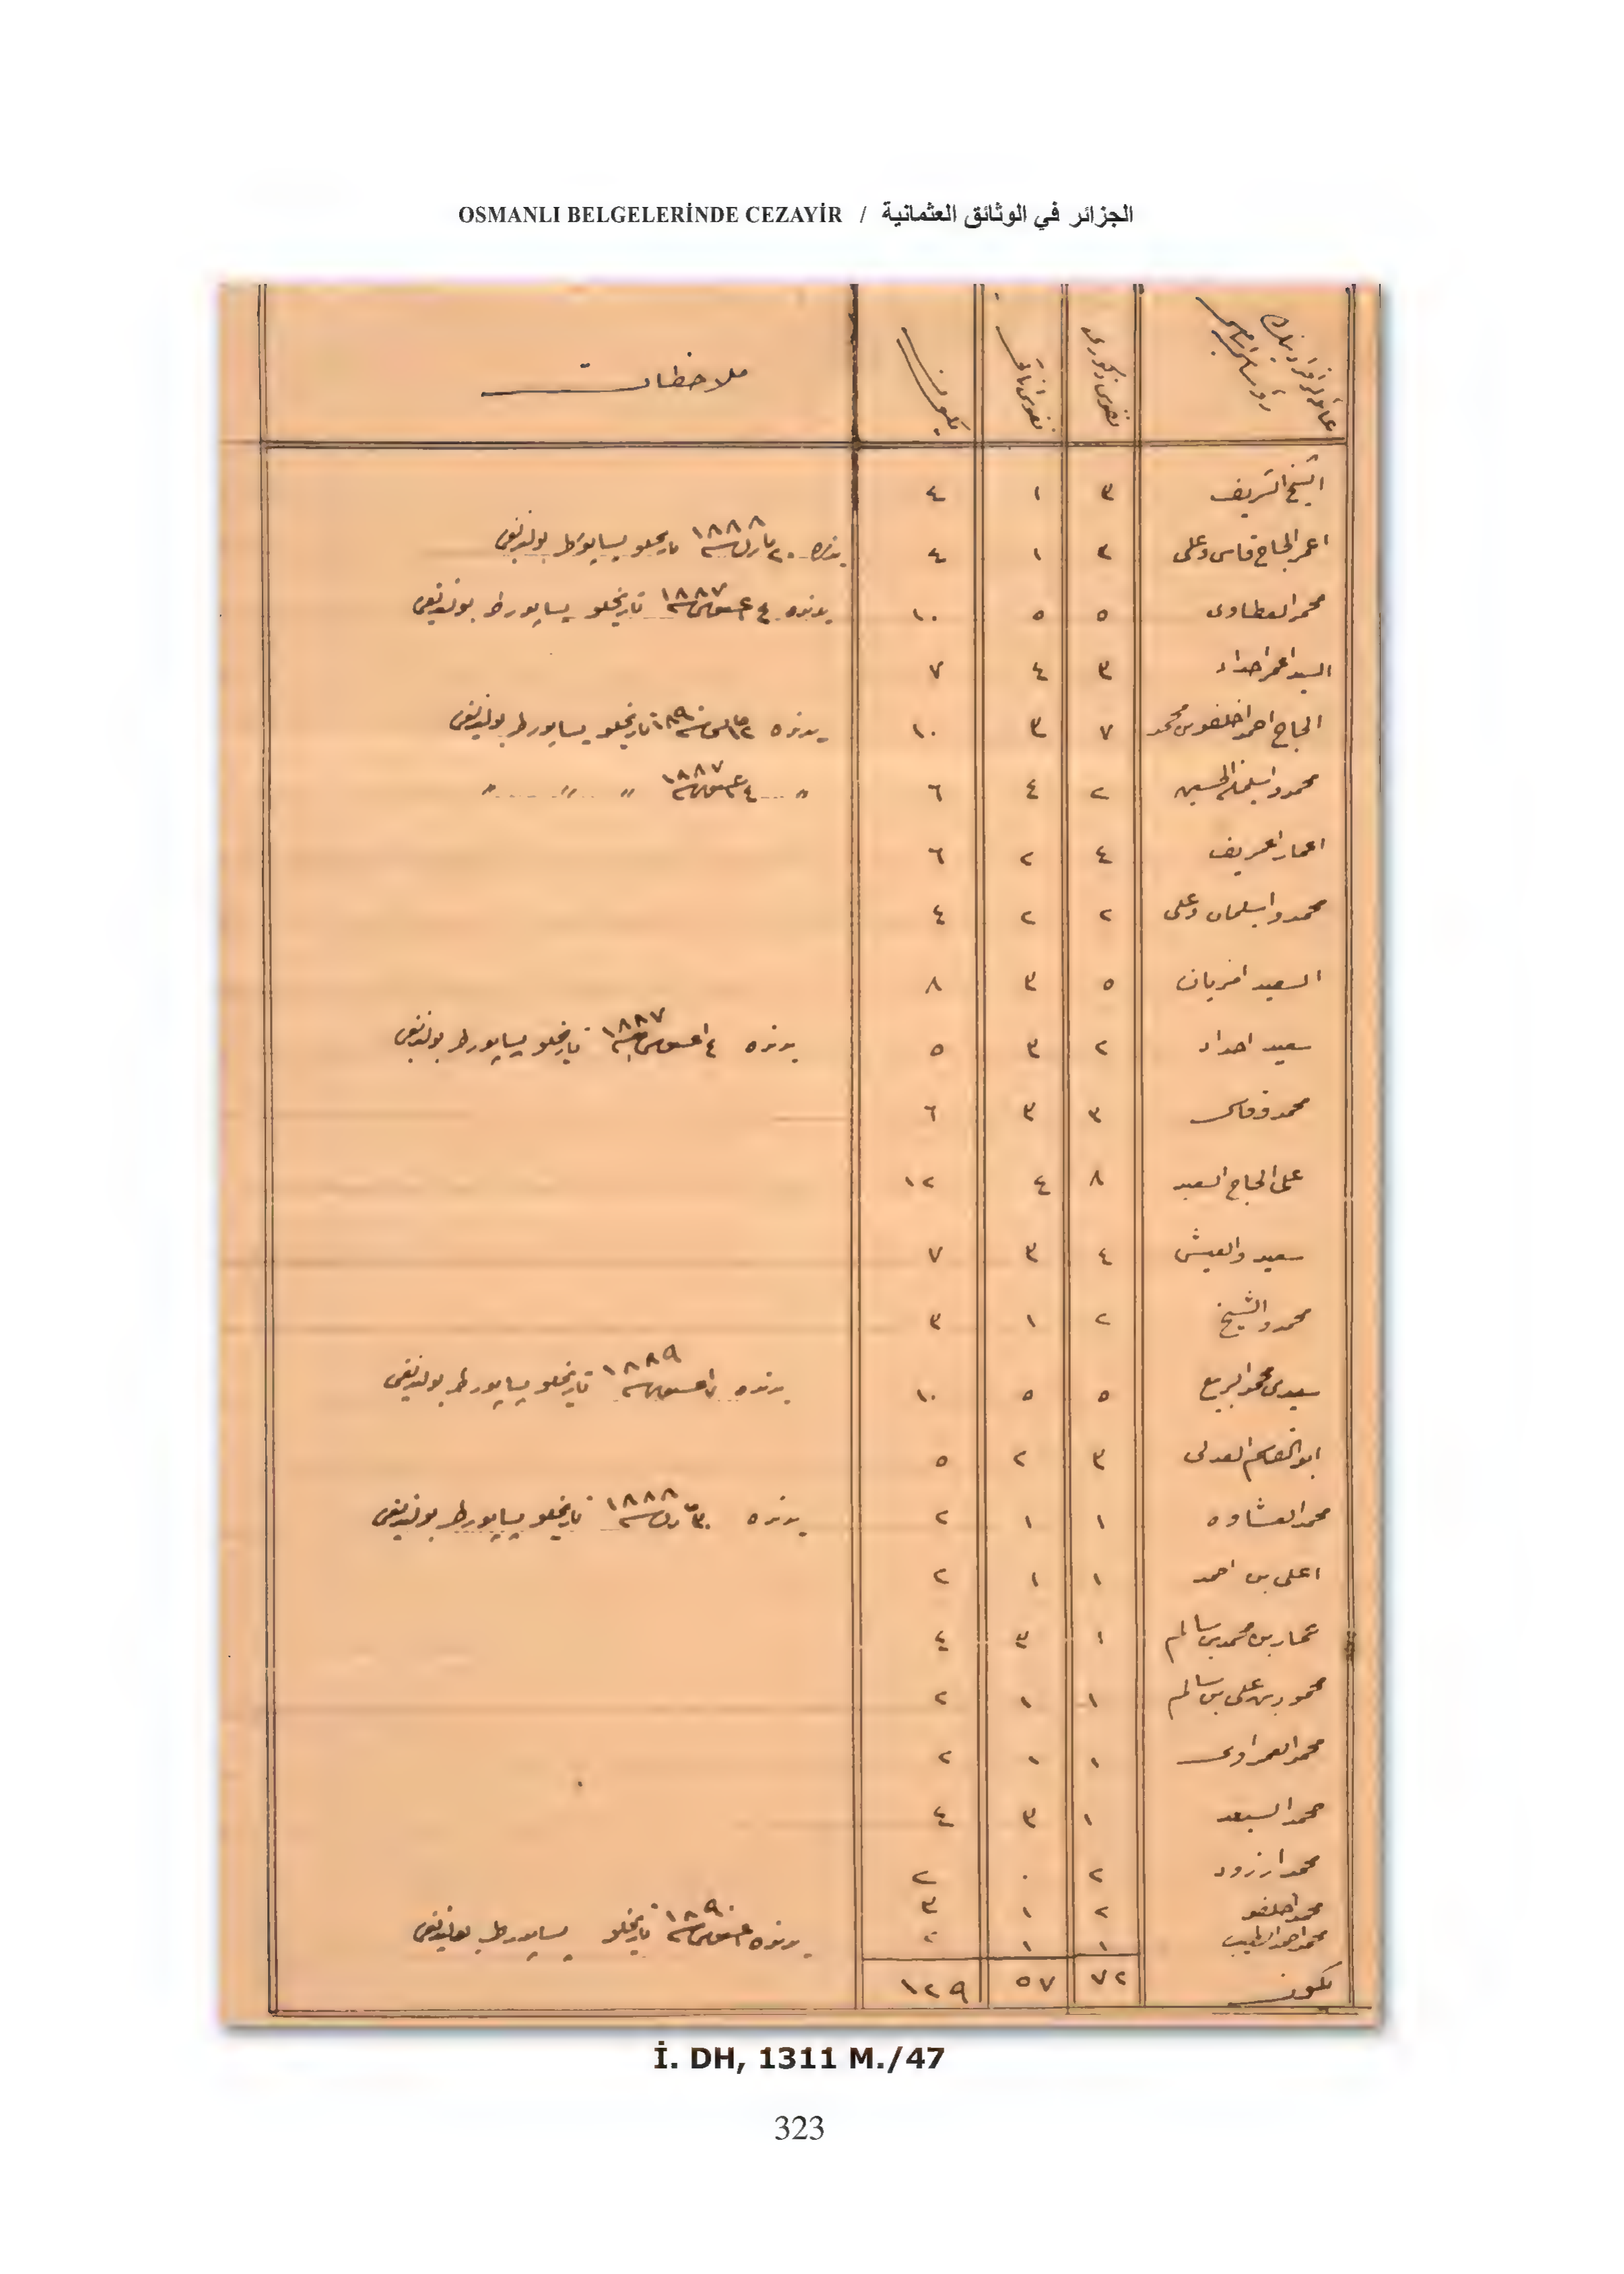 OSMANLI BELGELERİNDE CEZAYİR / الجزائر في الوثائق العثمانية
نفوس ذكورى نفوس اناث يكون ملاحظات
الشيخ الشريف ٣ ١ ٤
اعمر الحاج قاسى وعلى ٣ ١ ٤ يدنده ٢٠ مارت سنه ١٨٨٨ تاريخلو پساپورط بولنديغى
محمد العطاوى ٥ ٥ ١٠ يدنده ٤ اغستوس سنه ١٨٨٧ تاريخلو پساپورط بولنديغى
السيد اعمر احداد ٣ ٤ ٧
الحاج احمد اخلفو بن محمد ٧ ٣ ١٠ يدنده سنه ١٨٩٠ تاريخلو پساپورط بولنديغى
محمد و الحسين ٢ ٤ ٦ " ٤ اغستوس سنه ١٨٨٧ " " "
اعمار اعمريف ٤ ٢ ٦
محمد و اسليمان وعلى ٢ ٢ ٤
السعيد امزيان ٥ ٣ ٨
سعيد احداد ٢ ٣ ٥ يدنده ٤ اغستوس سنه ١٨٨٧ تاريخلو پساپورط بولنديغى
محمد وقاسى ٣ ٣ ٦
على الحاج السعيد ٨ ٤ ١٢
سعيد والعيش ٤ ٣ ٧
محمد والشيخ ٢ ١ ٣
سعيدى محمد الربيع ٥ ٥ ١٠ يدنده ٧ اغستوس سنه ١٨٨٩ تاريخلو پساپورط بولنديغى
ابوالقاسم العدلى ٣ ٢ ٥
محمد العشاوه ١ ١ ٢ يدنده ٣٠ مارت سنه ١٨٨٨ تاريخلو پساپورط بولنديغى
اعلى بن احمد ١ ١ ٢
عمار بن محمد بن سالم ١ ٣ ٤
محمود بن على بن سالم ١ ١ ٢
محمد العمراوى ١ ١ ٢
محمد السعيد ١ ٣ ٤
محمد ارزود ٢ ٠ ٢
محمد اخلفو ٢ ١ ٣
محمد احمد الطيب ١ ١ ٢ يدنده اغستوس سنه ١٨٩٠ تاريخلو پساپورط بولنديغى
يكون ٧٢ ٥٧ ١٢٩
İ. DH, 1311 M./47
323